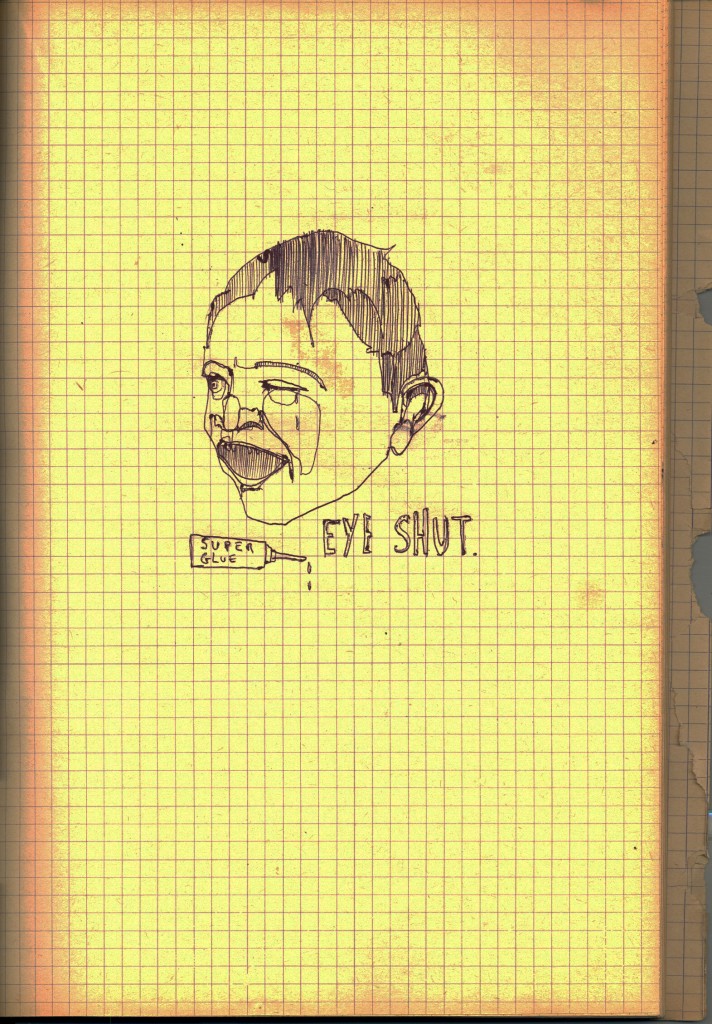 EYE SHUT.
SUPER
GLUE